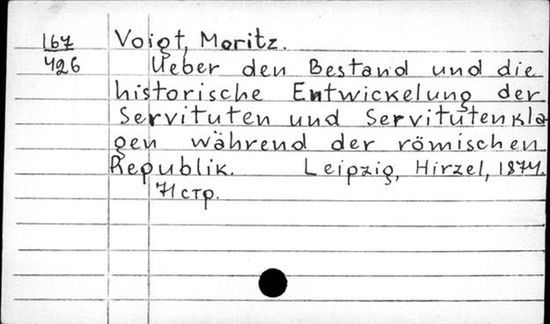 167 Voigt, Moritz.
426 Ueber den Bestand und die
historische Entwickelung der
Servituten und Servitutenkla
gen während der römischen
Republik. Leipzig, Hirzel, 1874.
71 стр.